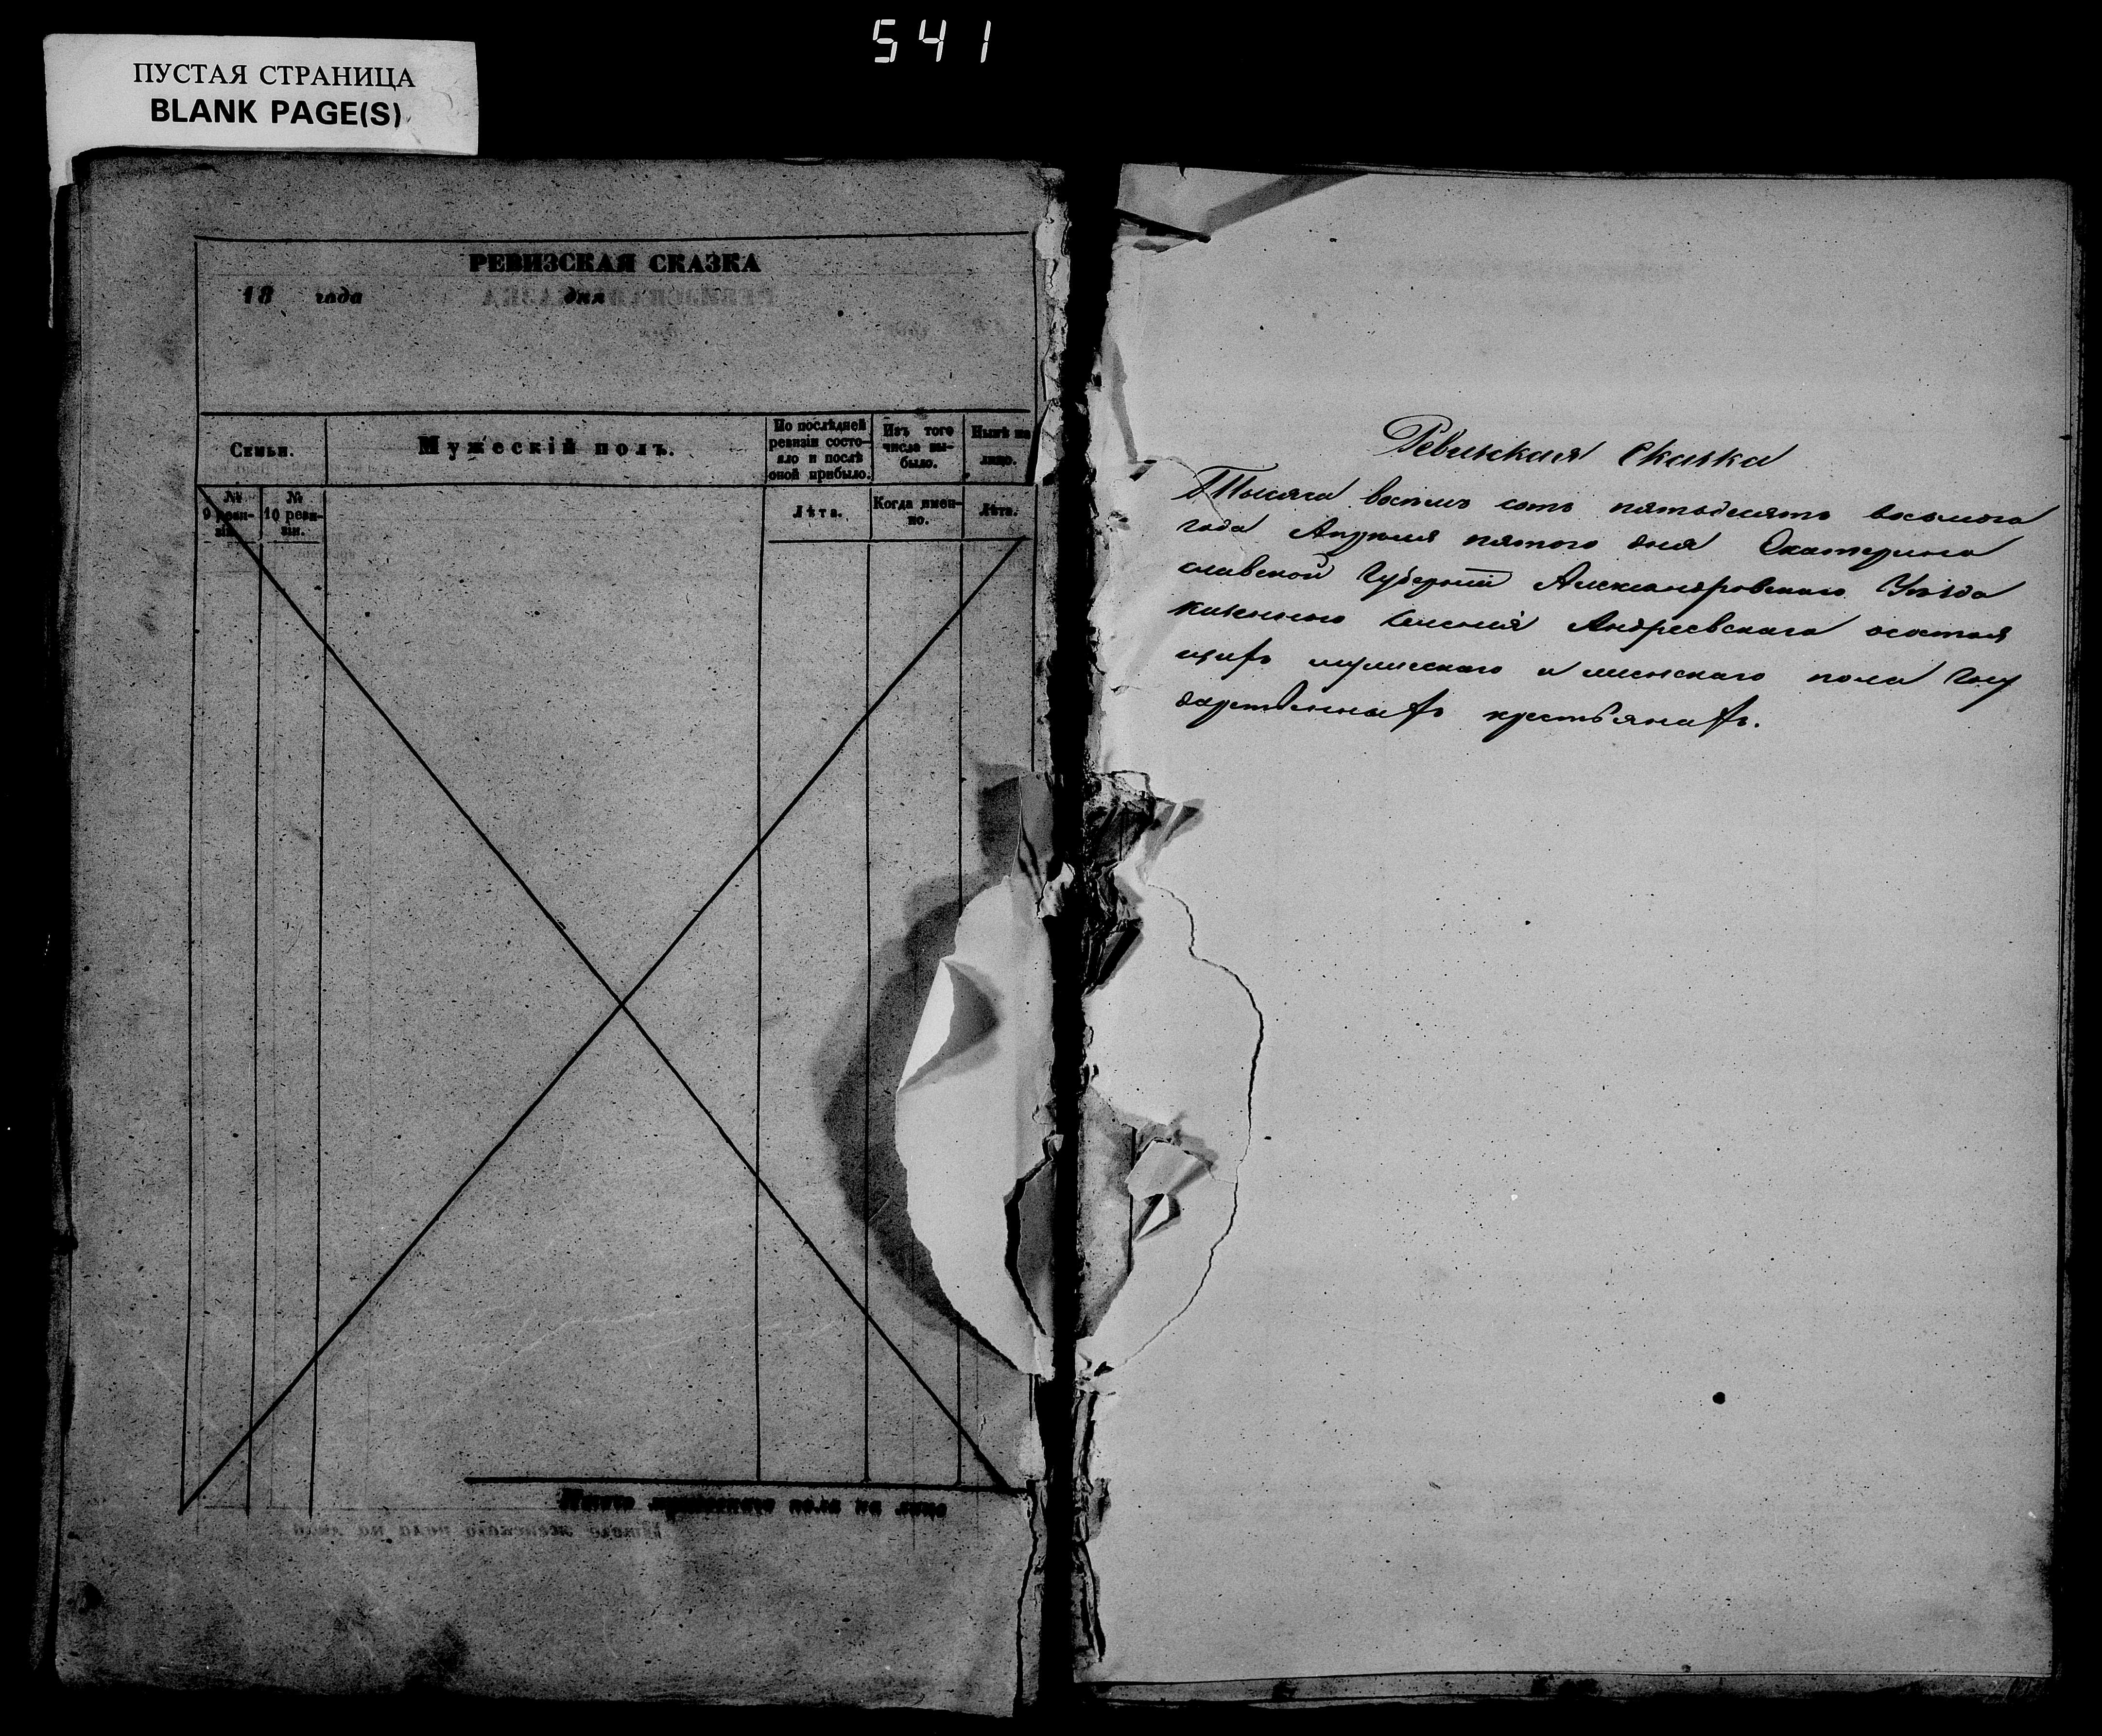 541
ПУСТАЯ СТРАНИЦА
BLANK PAGE(S)
РЕВИЗСКАЯ СКАЗКА
18 года дня
Семьи.
Мужескій полъ.
По послѣдней
ревизіи состо-
яло и послѣ
оной прибыло.
Изъ того
числа вы-
было.
Нынѣ на
лицо.
№
9 реви-
зіи.
№
10 реви-
зіи.
Лѣта.
Когда имен-
но.
Лѣта.
Итого мужескаго пола на лицо
Ревизская Сказка
Тысяча восемь сотъ пятьдесятъ восьмого
года Апреля пятого дня Екатерино
славской Губерніи Александровскаго Уезда
казенного Селенія Андреевскаго состоя
щихъ мужескаго и женскаго пола Госу
дарственныхъ крестьянахъ.